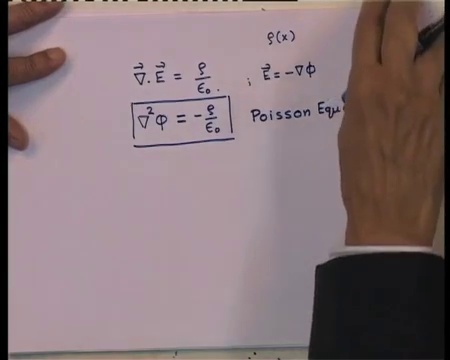 ρ(x)
∇⃗.E⃗ = ρ/ε₀. ; E⃗ = -∇φ
∇²φ = -ρ/ε₀ Poisson Equ